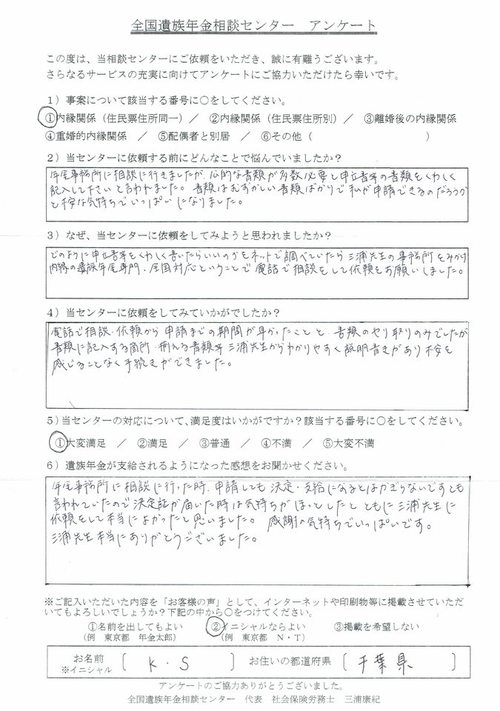 全国遺族年金相談センター　アンケート
この度は、当相談センターにご依頼をいただき、誠に有難うございます。
さらなるサービスの充実に向けてアンケートにご協力いただけたら幸いです。
1）事案について該当する番号に○をしてください。
①内縁関係（住民票住所同一）／　②内縁関係（住民票住所別）／　③離婚後の内縁関係
④重婚的内縁関係　／　⑤配偶者と別居　／　⑥その他（　　　　　　　　）
2）当センターに依頼する前にどんなことで悩んでいましたか？
年金事務所に相談に行きましたが、公的な書類が多数必要と申立書等の書類をくわしく
記入して下さいと言われました。書類はむずかしい書類ばかりで私が申請できるのだろうか
と不安な気持ちでいっぱいになりました。
3）なぜ、当センターに依頼をしてみようと思われましたか？
どのように申立書をくわしく書いたらいいのかをネットで調べていたら三浦先生の事務所をみかけ
内縁の遺族年金専門、全国対応ということで電話で相談をして依頼をお願いしました。
4）当センターに依頼をしてみていかがでしたか？
電話で相談・依頼から申請までの期間が早かったことと　書類のやり取りのみでしたが
書類に記入する箇所・揃える書類等三浦先生からわかりやすく説明書きがあり不安を
感じることなく手続きができました。
5）当センターの対応について、満足度はいかがですか？該当する番号に○をしてください。
①大変満足　／　②満足　／　③普通　／　④不満　／　⑤大変不満
6）遺族年金が支給されるようになった感想をお聞かせください。
年金事務所に相談に行った時、申請しても決定・支給になるとはかぎらないですとも
言われていたので決定証が届いた時は気持ちがほっとしたとともに三浦先生に
依頼をして本当によかったと思いました。感謝の気持ちでいっぱいです。
三浦先生本当にありがとうございました。
※ご記入いただいた内容を「お客様の声」として、インターネットや印刷物等に掲載させていただ
いてもよろしいでしょうか？下記の中から○をつけてください。
①名前を出してもよい　　②イニシャルならよい　　③掲載を希望しない
（例　東京都　年金太郎）　　（例　東京都　N・T）
お名前
※イニシャル
K．S
お住いの都道府県
千葉県
アンケートのご協力ありがとうございました。
全国遺族年金相談センター　代表　社会保険労務士　三浦康紀